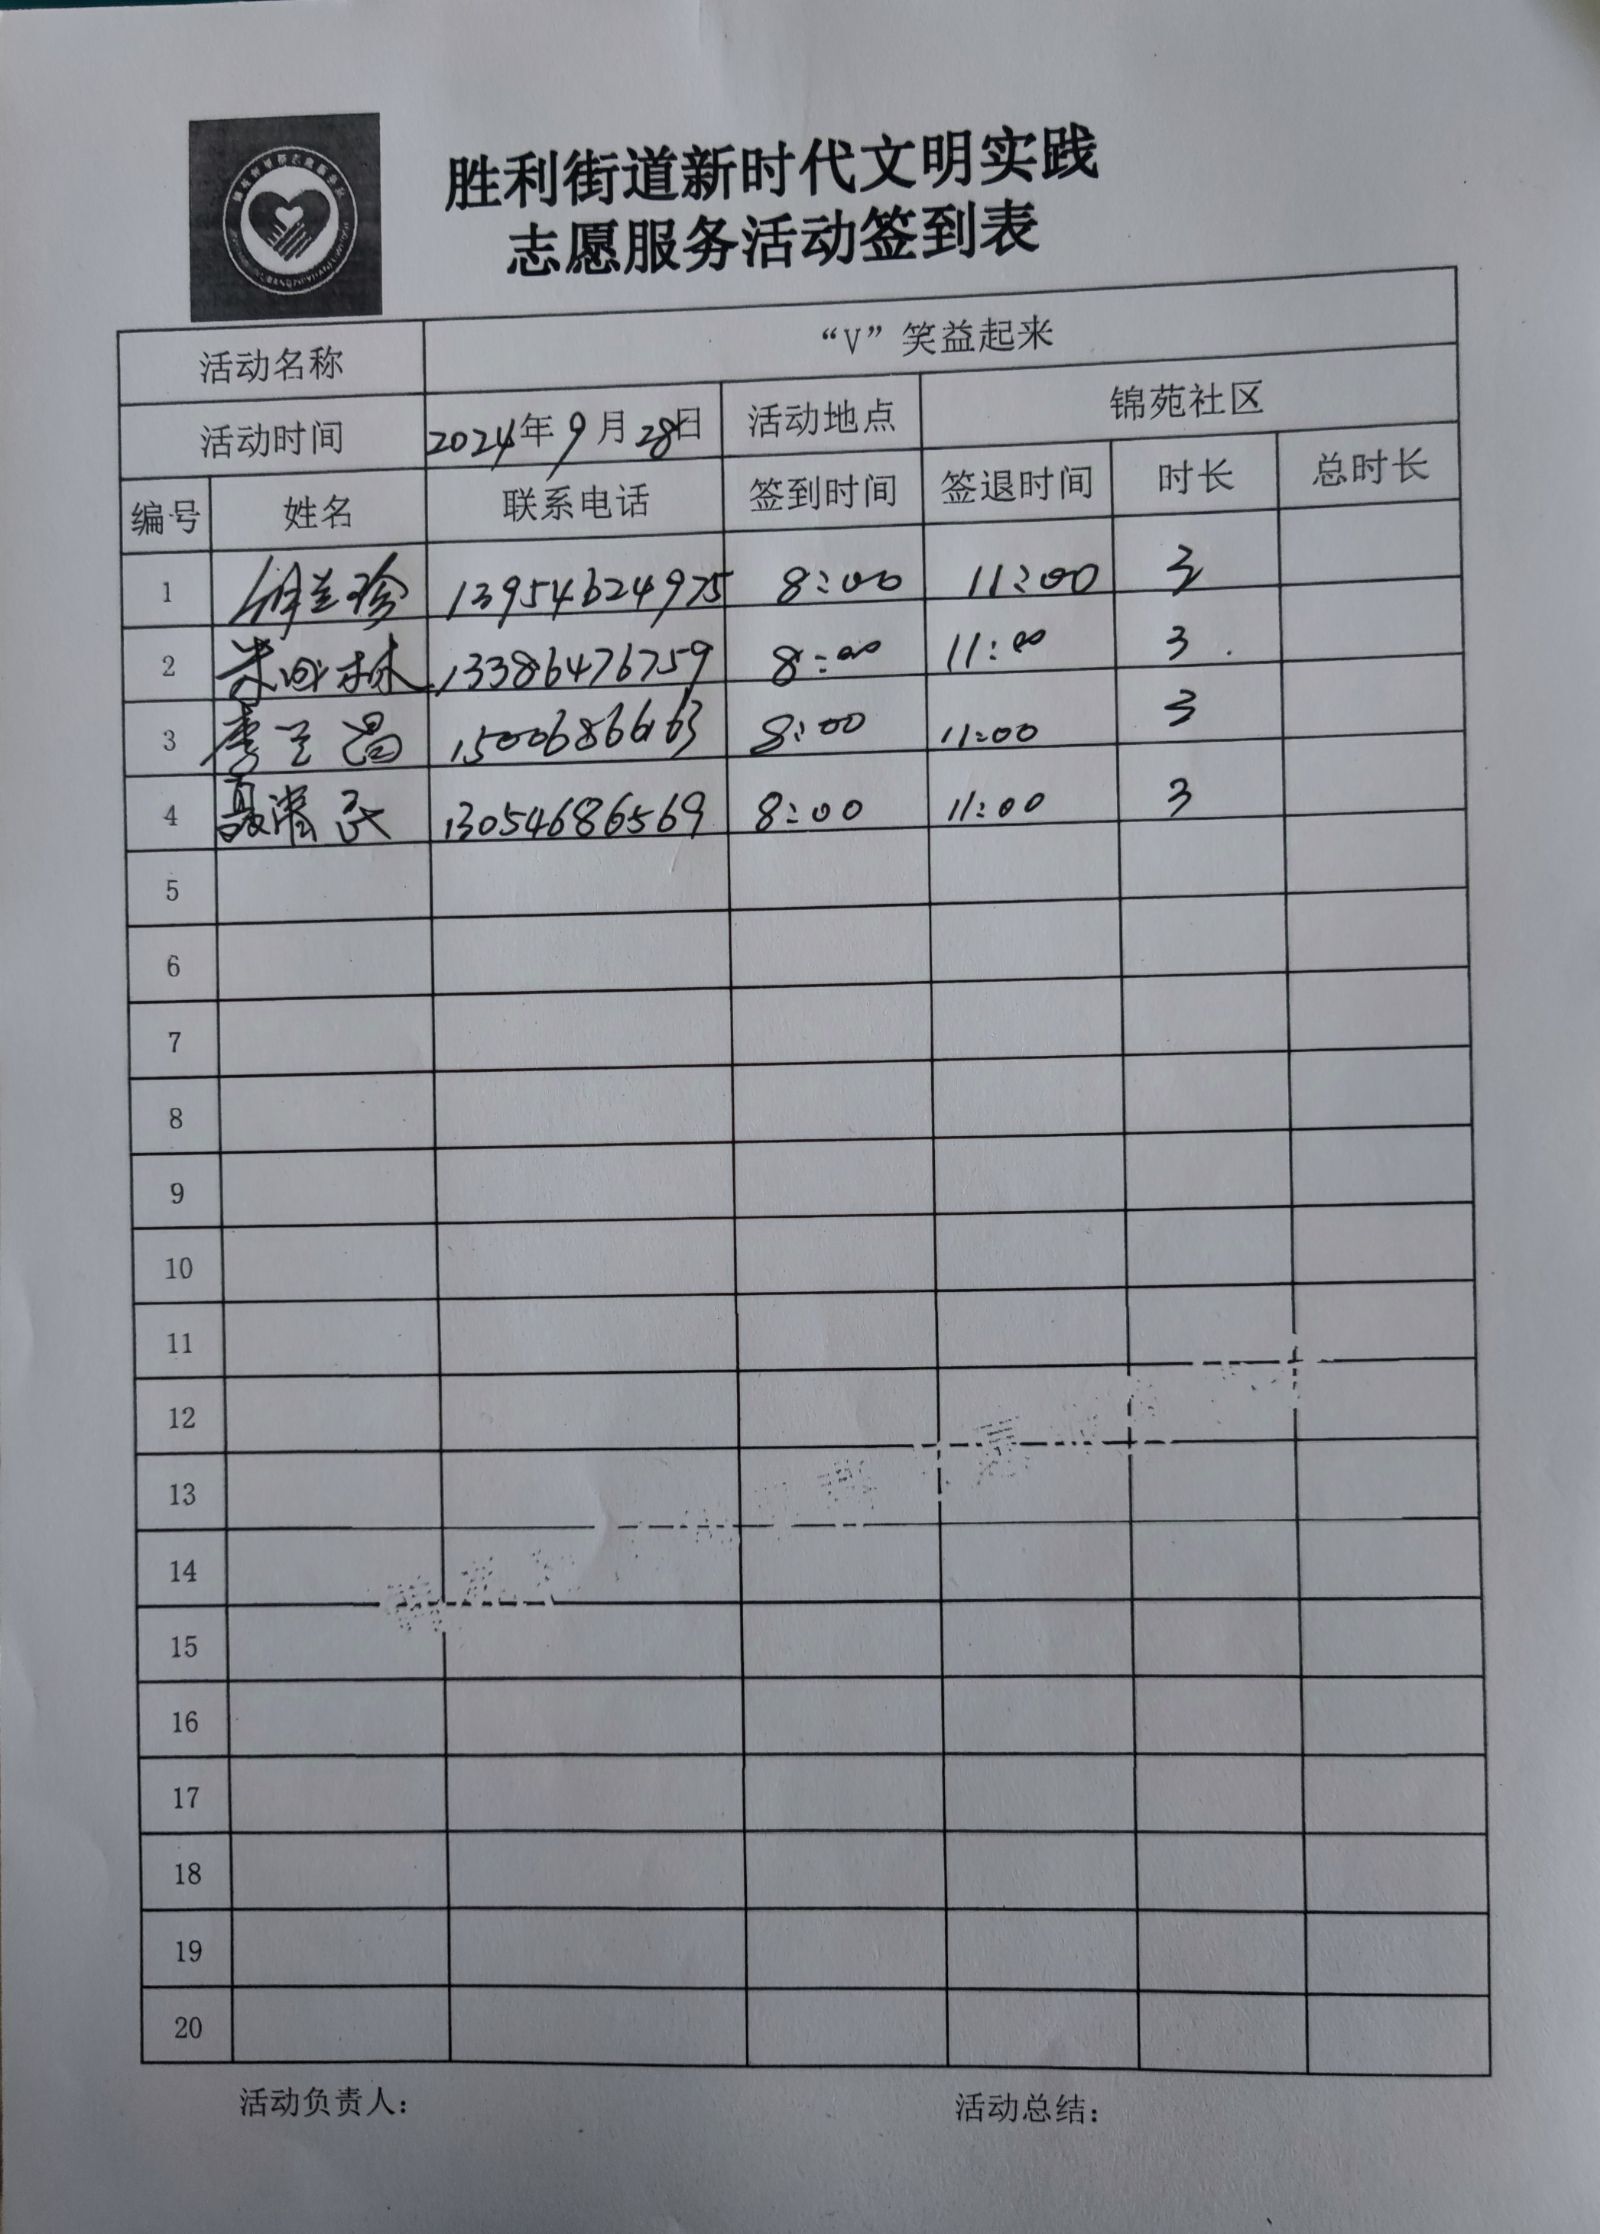 胜利街道新时代文明实践
志愿服务活动签到表
活动名称 “V”笑益起来
活动时间 2024年9月28日 活动地点 锦苑社区
编号 姓名 联系电话 签到时间 签退时间 时长 总时长
1 兰珍 13954624975 8:00 11:00 3
2 林 13386476759 8:00 11:00 3
3 李兰 15006866163 8:00 11:00 3
4 聂 民 13054686569 8:00 11:00 3
5
6
7
8
9
10
11
12
13
14
15
16
17
18
19
20
活动负责人： 活动总结：